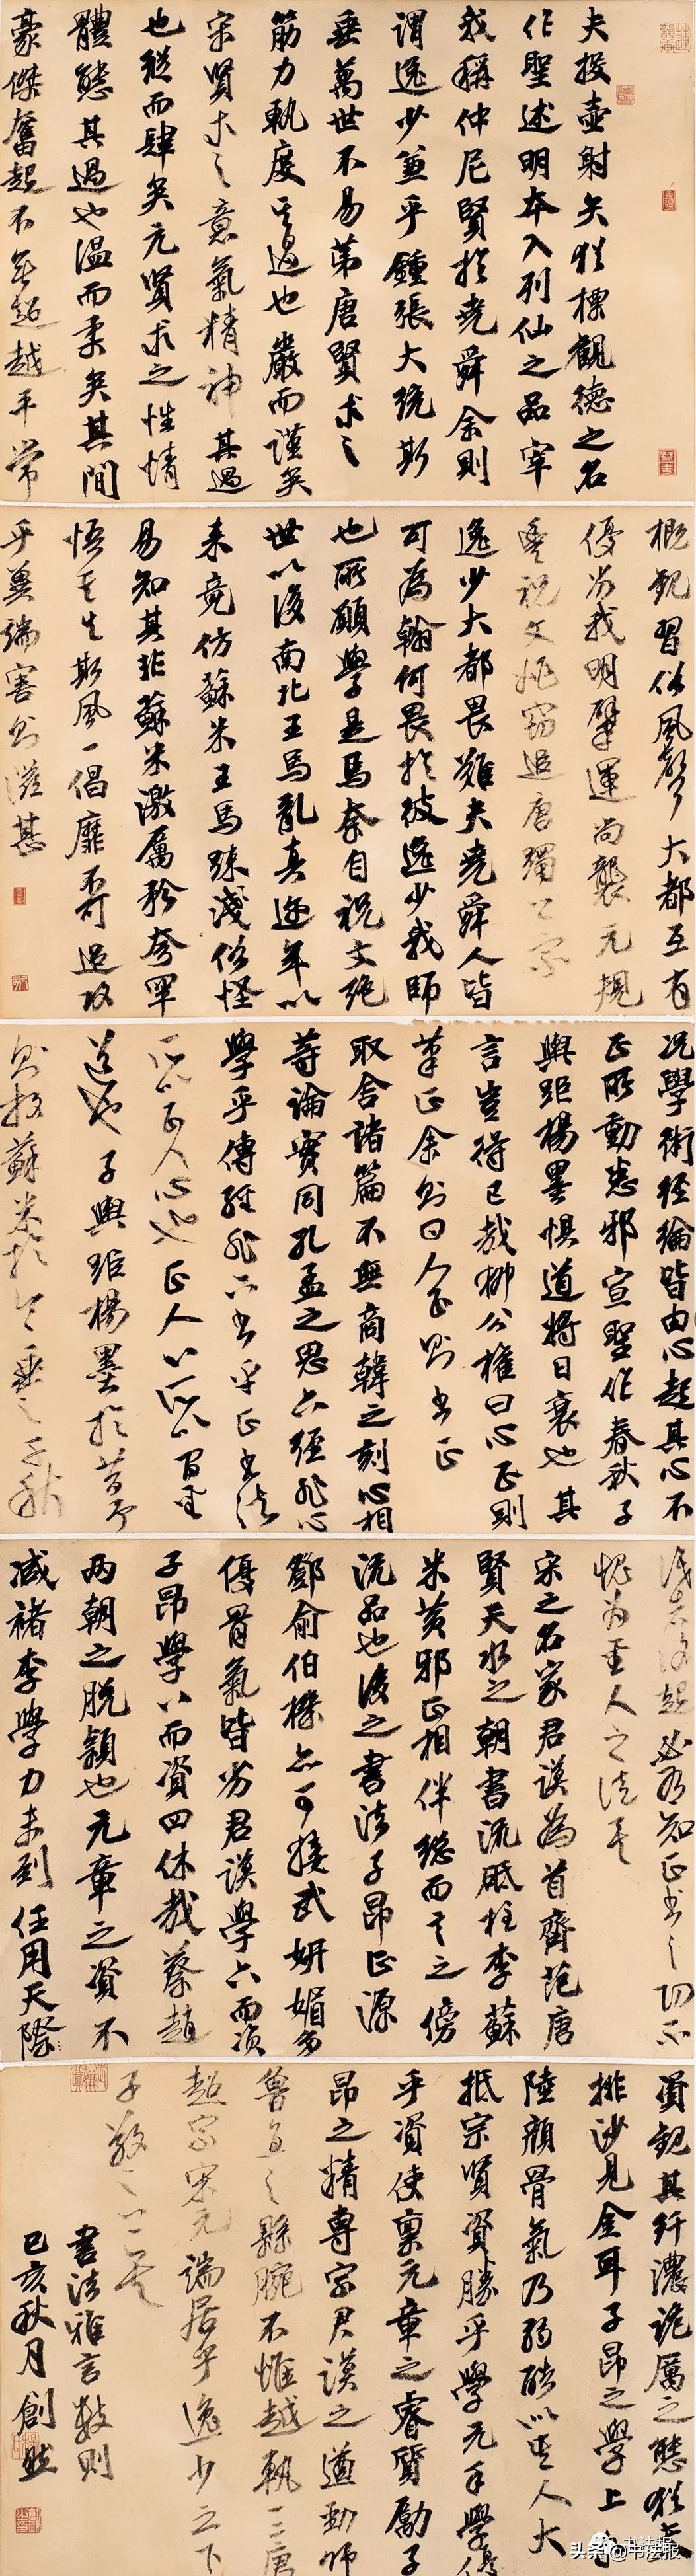 夫投壺射矢猶標觀德之名
作聖述明本入列仙之品宰
我稱仲尼賢於堯舜余則
謂逸少兼乎鍾張大統斯
垂萬世不易第唐賢求之
筋力軌度其過也嚴而謹矣
宋賢求之意氣精神其過
也縱而肆矣元賢求之性情
體態其過也溫而柔矣其間
豪傑奮起不無超越平常
概觀習俗風聲大都互有
優劣我明肇運尚襲元規
豐祝文姚竊追唐躅上宗
逸少大都畏難夫堯舜人皆
可為翰何畏於彼逸少我師
也所願學是焉奈自祝文絕
世以後南北王馬亂真邇年以
來竟仿蘇米王馬疎淺俗怪
易知其非蘇米激厲矜夸罕
悟其失斯風一倡靡不可追攻
乎異端害則滋甚
況學術經綸皆由心起其心不
正所動悉邪宣聖作春秋子
輿距楊墨懼道將日衰也其
言豈得已哉柳公權曰心正則
筆正余則曰人正則書正
取舍諸篇不無商韓之刻心相
等論實同孔孟之思六經非心
學乎傳經非六書乎正書法
所以正人心也正人心所以閑聖
道也子輿距楊墨於昔予
則放蘇米於今垂之千秋
識者復起必有知正書之功不
愧為聖人之徒矣
宋之名家君謨為首齊範唐
賢天水之朝書流砥柱李蘇
米黃邪正相伴總而言之傍
流品也後之書法子昂正源
鄧俞伯機亦可接武妍媚多
優骨氣皆劣君謨學六而資
子昂學八而資四休哉蔡趙
兩朝之脫穎也元章之資不
減褚李學力未到任用天隙
資觀其纤濃詭厲之態猶夫
排沙見金耳子昂之學上
陸顏骨氣乃弱酷似其人大
抵宗賢資勝乎學元手學優
乎資使稟元章之睿質勵子
昂之精專宗君謨之遒勁師
魯直之懸腕不惟越軌三唐
超宗宋元端居乎逸少之下
子敬之上矣
書法雅言數則
己亥秋月創
头条@书法报